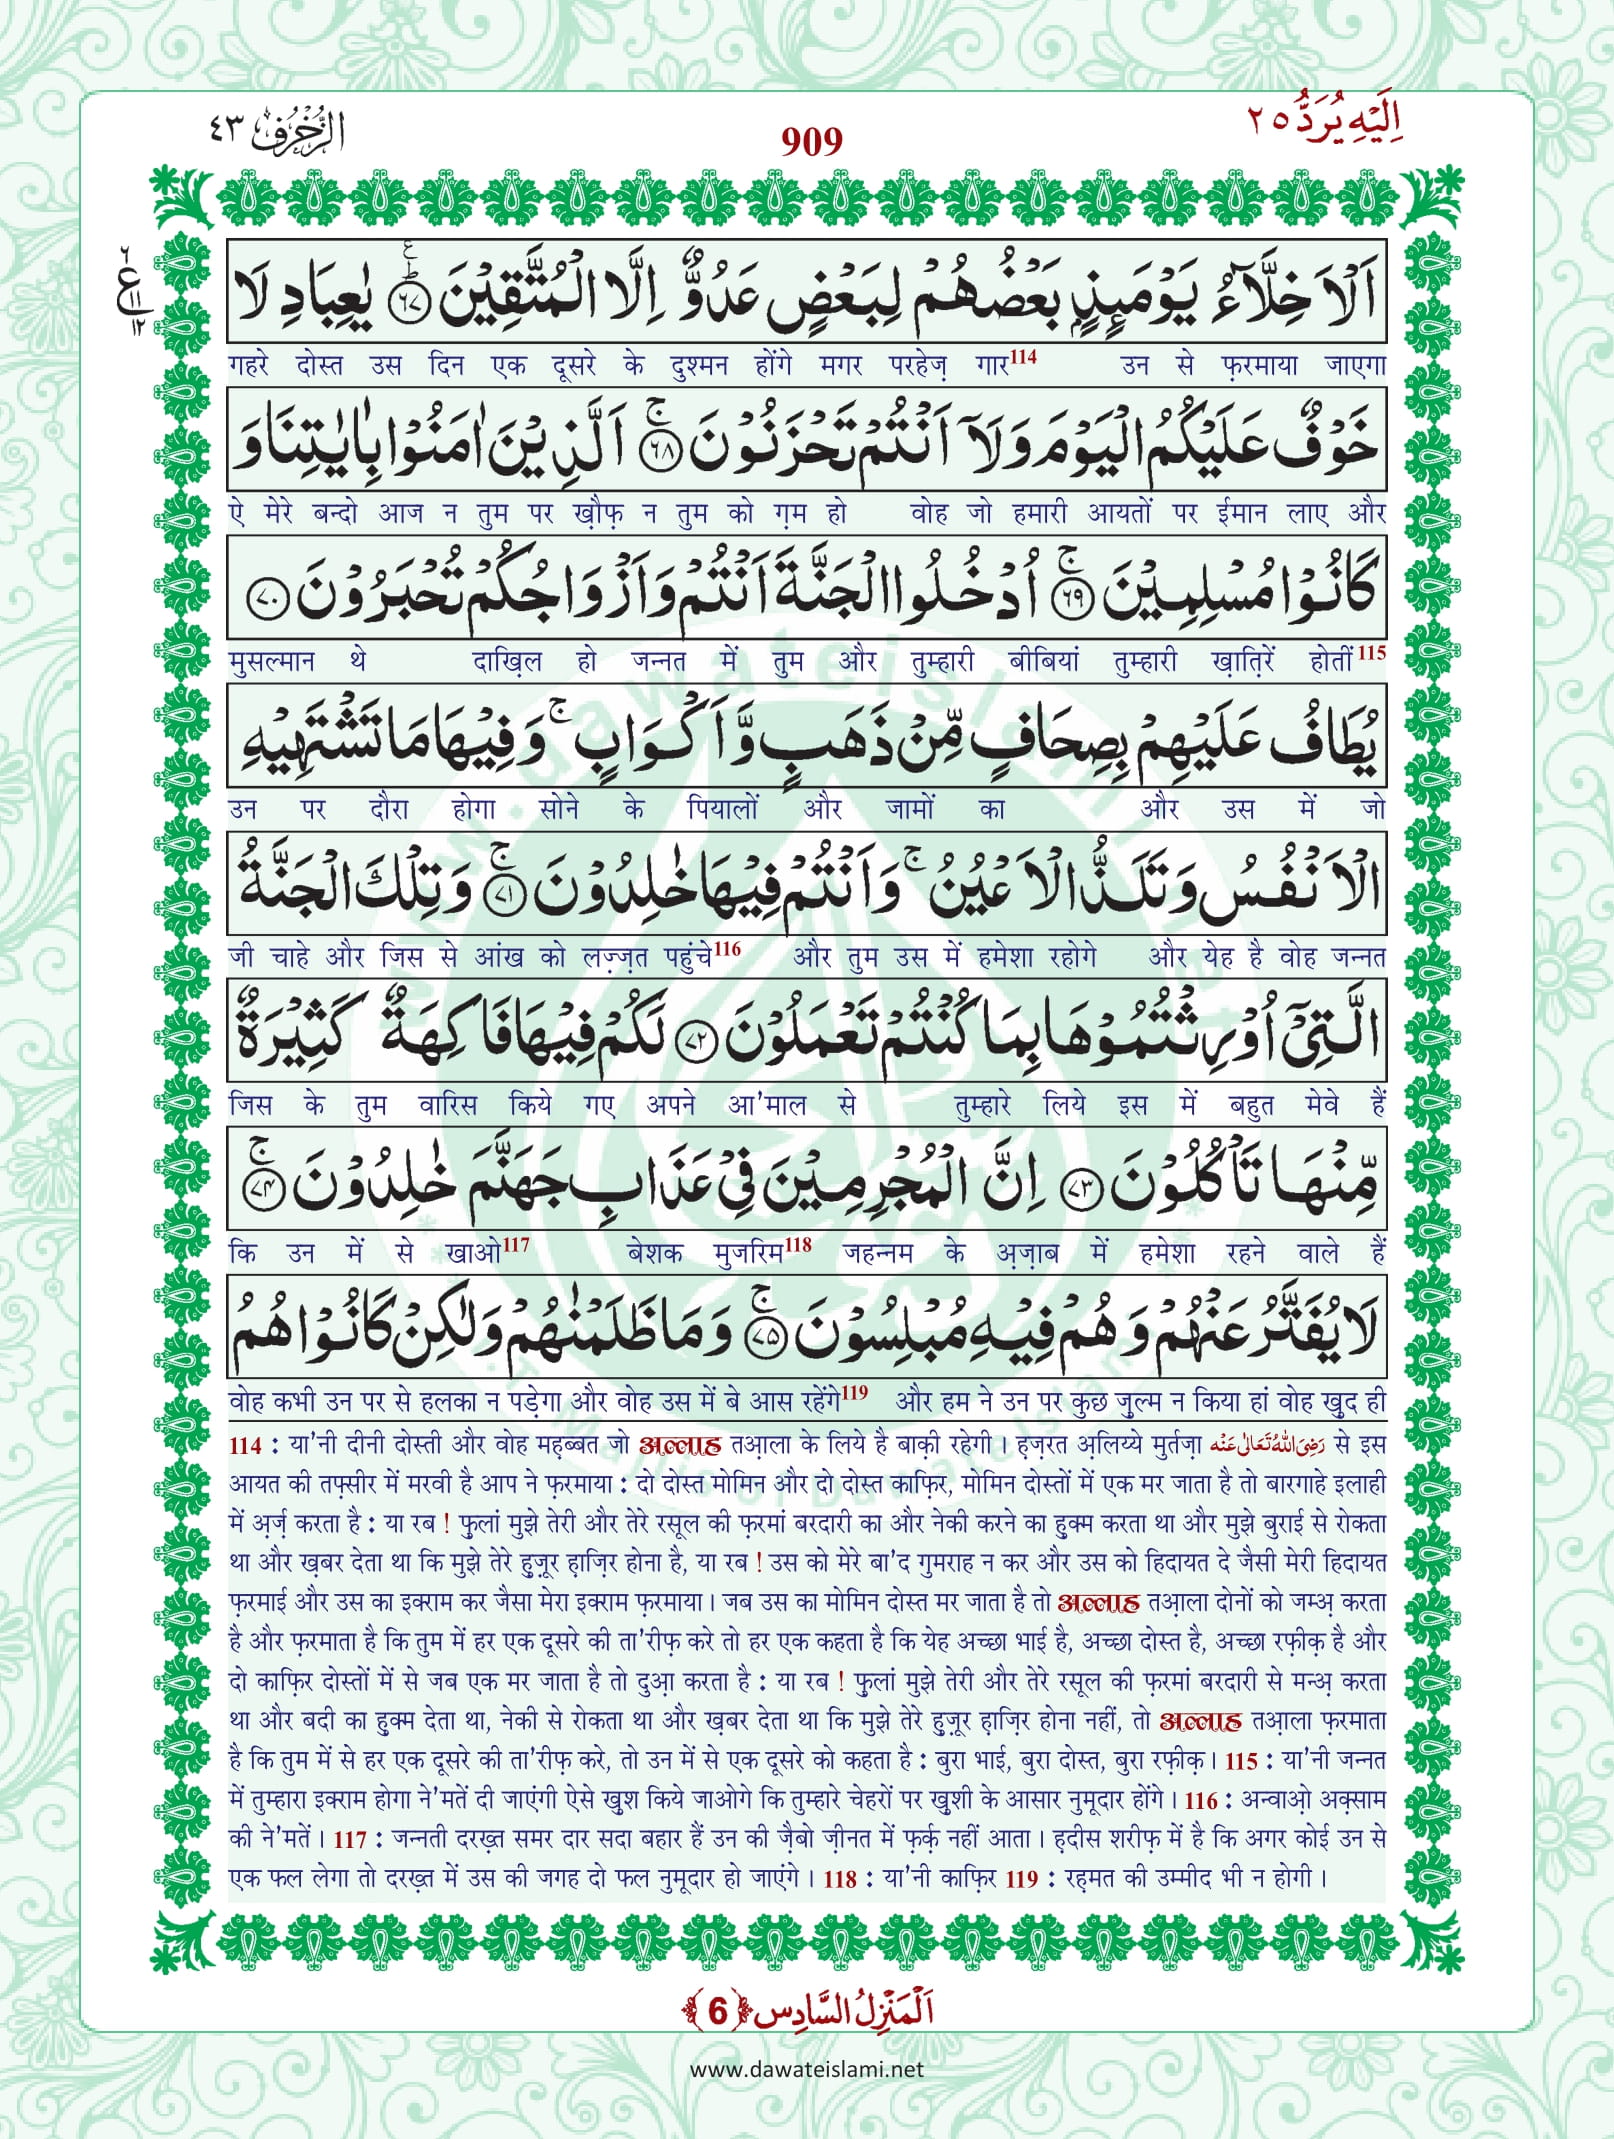 اِلَیْهِ یُرَدُّ ٢٥
909
الزُّخْرُف ٤٣
اَلْاَخِلَّآءُ یَوْمَىِٕذٍۭ بَعْضُهُمْ لِبَعْضٍ عَدُوٌّ اِلَّا الْمُتَّقِیْنَ ﴿۶۷﴾ یٰعِبَادِ لَا
गहरे दोस्त उस दिन एक दूसरे के दुश्मन होंगे मगर परहेज़ गार114 उन से फ़रमाया जाएगा
خَوْفٌ عَلَیْكُمُ الْیَوْمَ وَلَاۤ اَنْتُمْ تَحْزَنُوْنَ ﴿۶۸﴾ۚ اَلَّذِیْنَ اٰمَنُوْا بِاٰیٰتِنَا وَ
ऐ मेरे बन्दो आज न तुम पर ख़ौफ़ न तुम को ग़म हो वोह जो हमारी आयतों पर ईमान लाए और
كَانُوْا مُسْلِمِیْنَ ﴿۶۹﴾ۚ اُدْخُلُوا الْجَنَّةَ اَنْتُمْ وَاَزْوَاجُكُمْ تُحْبَرُوْنَ ﴿۷۰﴾
मुसल्मान थे दाख़िल हो जन्नत में तुम और तुम्हारी बीबियां तुम्हारी ख़ातिरें होतीं115
یُطَافُ عَلَیْهِمْ بِصِحَافٍ مِّنْ ذَهَبٍ وَّاَكْوَابٍ ۚ وَفِیْهَا مَا تَشْتَهِیْهِ
उन पर दौरा होगा सोने के पियालों और जामों का और उस में जो
الْاَنْفُسُ وَتَلَذُّ الْاَعْیُنُ ۚ وَاَنْتُمْ فِیْهَا خٰلِدُوْنَ ﴿۷۱﴾ۚ وَتِلْكَ الْجَنَّةُ
जी चाहे और जिस से आंख को लज़्ज़त पहुंचे116 और तुम उस में हमेशा रहोगे और येह है वोह जन्नत
الَّتِیْۤ اُوْرِثْتُمُوْهَا بِمَا كُنْتُمْ تَعْمَلُوْنَ ﴿۷۲﴾ لَكُمْ فِیْهَا فَاكِهَةٌ كَثِیْرَةٌ
जिस के तुम वारिस किये गए अपने आ'माल से तुम्हारे लिये इस में बहुत मेवे हैं
مِّنْهَا تَاْكُلُوْنَ ﴿۷۳﴾ اِنَّ الْمُجْرِمِیْنَ فِیْ عَذَابِ جَهَنَّمَ خٰلِدُوْنَ ﴿۷۴﴾ۚ
कि उन में से खाओ117 बेशक मुजरिम118 जहन्नम के अ़ज़ाब में हमेशा रहने वाले हैं
لَا یُفَتَّرُ عَنْهُمْ وَهُمْ فِیْهِ مُبْلِسُوْنَ ﴿۷۵﴾ۚ وَمَا ظَلَمْنٰهُمْ وَلٰكِنْ كَانُوْا هُمُ
वोह कभी उन पर से हलका न पड़ेगा और वोह उस में बे आस रहेंगे119 और हम ने उन पर कुछ ज़ुल्म न किया हां वोह खुद ही
114 : या'नी दीनी दोस्ती और वोह मह़ब्बत जो अल्लाह तआ़ला के लिये है बाक़ी रहेगी । ह़ज़रत अ़लिय्ये मुर्तज़ा رَضِیَ اللهُ تَعَالٰی عَنْه से इस
आयत की तफ़्सीर में मरवी है आप ने फ़रमाया : दो दोस्त मोमिन और दो दोस्त काफ़िर, मोमिन दोस्तों में एक मर जाता है तो बारगाहे इलाही
में अ़र्ज़ करता है : या रब ! फुलां मुझे तेरी और तेरे रसूल की फ़रमां बरदारी का और नेकी करने का हुक्म करता था और मुझे बुराई से रोकता
था और ख़बर देता था कि मुझे तेरे हुज़ूर ह़ाज़िर होना है, या रब ! उस को मेरे बा'द गुमराह न कर और उस को हिदायत दे जैसी मेरी हिदायत
फ़रमाई और उस का इक्राम कर जैसा मेरा इक्राम फ़रमाया । जब उस का मोमिन दोस्त मर जाता है तो अल्लाह तआ़ला दोनों को जम्अ़ करता
है और फ़रमाता है कि तुम में हर एक दूसरे की ता'रीफ़ करे तो हर एक कहता है कि येह अच्छा भाई है, अच्छा दोस्त है, अच्छा रफ़ीक़ है और
दो काफ़िर दोस्तों में से जब एक मर जाता है तो दुआ़ करता है : या रब ! फुलां मुझे तेरी और तेरे रसूल की फ़रमां बरदारी से मन्अ़ करता
था और बदी का हुक्म देता था, नेकी से रोकता था और ख़बर देता था कि मुझे तेरे हुज़ूर ह़ाज़िर होना नहीं, तो अल्लाह तआ़ला फ़रमाता
है कि तुम में से हर एक दूसरे की ता'रीफ़ करे, तो उन में से एक दूसरे को कहता है : बुरा भाई, बुरा दोस्त, बुरा रफ़ीक़ । 115 : या'नी जन्नत
में तुम्हारा इक्राम होगा ने'मतें दी जाएंगी ऐसे खुश किये जाओगे कि तुम्हारे चेहरों पर खुशी के आसार नुमूदार होंगे । 116 : अन्वाओ़ अक़्साम
की ने'मतें । 117 : जन्नती दरख़्त समर दार सदा बहार हैं उन की ज़ैबो ज़ीनत में फ़र्क़ नहीं आता । ह़दीस शरीफ़ में है कि अगर कोई उन से
एक फल लेगा तो दरख़्त में उस की जगह दो फल नुमूदार हो जाएंगे । 118 : या'नी काफ़िर 119 : रह़मत की उम्मीद भी न होगी ।
اَلْمَنْزِلُ السَّادِس ﴿6﴾
www.dawateislami.net